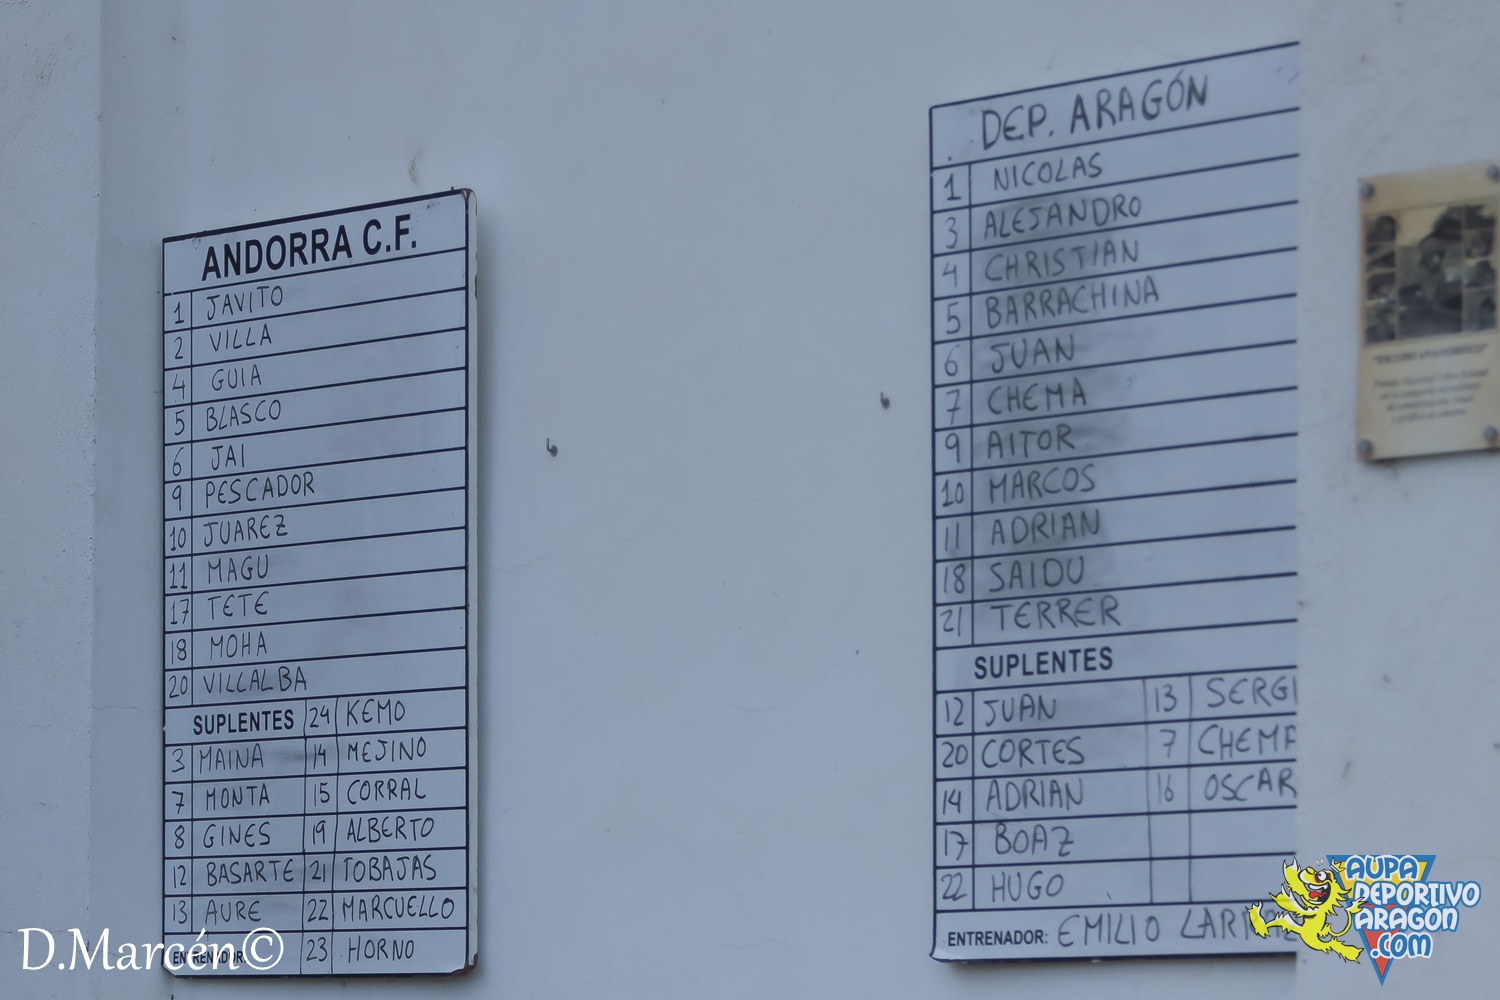 ANDORRA C.F.
1 JAVITO
2 VILLA
4 GUIA
5 BLASCO
6 JAI
9 PESCADOR
10 JUAREZ
11 MAGU
17 TETE
18 MOHA
20 VILLALBA
SUPLENTES 24 KEMO
3 MAINA 14 MEJINO
7 MONTA 15 CORRAL
8 GINES 19 ALBERTO
12 BASARTE 21 TOBAJAS
13 AURE 22 MARCUELLO
23 HORNO
DEP. ARAGÓN
1 NICOLAS
3 ALEJANDRO
4 CHRISTIAN
5 BARRACHINA
6 JUAN
7 CHEMA
9 AITOR
10 MARCOS
11 ADRIAN
18 SAIDU
21 TERRER
SUPLENTES
12 JUAN 13 SERGI
20 CORTES 7 CHEMA
14 ADRIAN 16 OSCAR
17 BOAZ
22 HUGO
ENTRENADOR: EMILIO
D.Marcén©
AUPA
DEPORTIVO
ARAGON
.COM